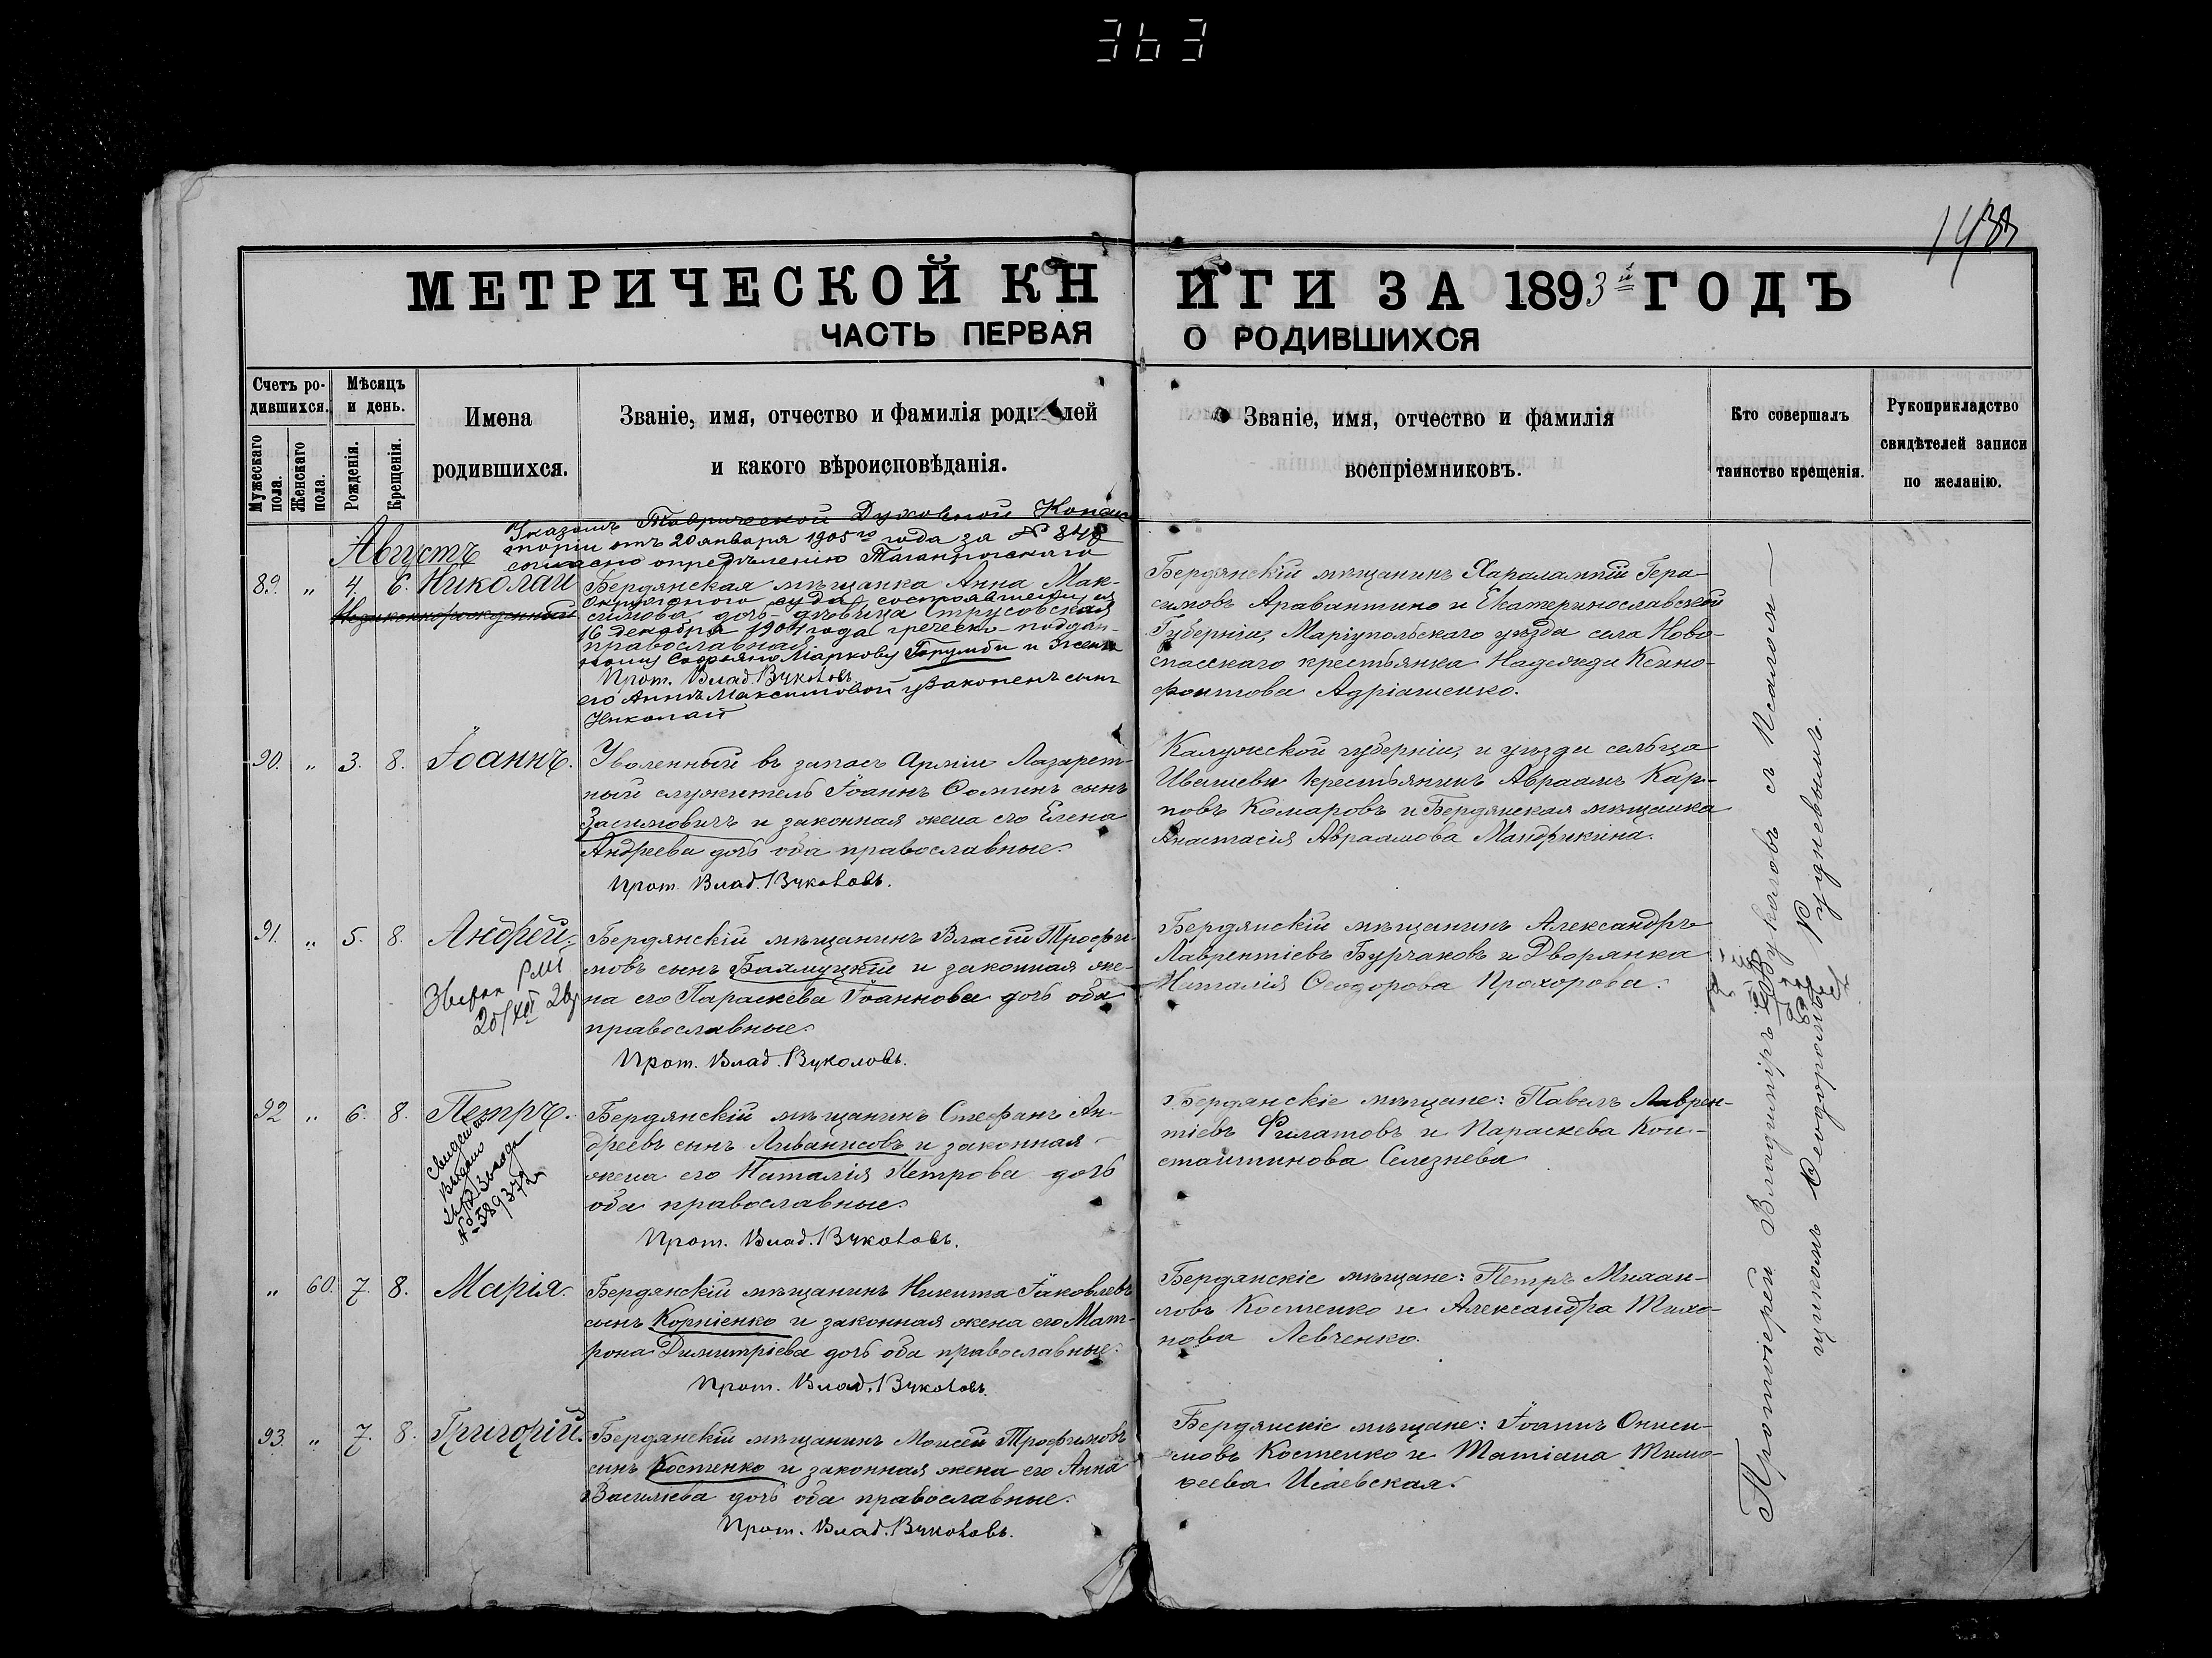 363
1493
МЕТРИЧЕСКОЙ КНИГИ ЗА 1893й ГОДЪ
ЧАСТЬ ПЕРВАЯ О РОДИВШИХСЯ
Счетъ ро-
дившихся.
Мужескаго пола.
Женскаго пола.
Мѣсяцъ
и день.
Рожденія.
Крещенія.
Имена
родившихся.
Званіе, имя, отчество и фамилія родителей
и какого вѣроисповѣданія.
Званіе, имя, отчество и фамилія
воспріемниковъ.
Кто совершалъ
таинство крещенія.
Рукоприкладство
свидѣтелей записи
по желанію.
Августъ
Указомъ Таврической Духовной Конси-
сторіи отъ 20 января 1905го года за № 848
согласно опредѣленію Таганрогскаго
Окружного суда, состоявшемуся
16 декабря 1904 года греческо-поддан-
ному Маркову Горумби и жены
его Аннѣ Максимовой узаконенъ сынъ
Николай
89. " 4. 6. Николай
Незаконнорожденный
Бердянская мѣщанка Анна Мак-
симова дочь дѣвица Струсовская
православная.
Прот. Влад. Вуколовъ.
Бердянскій мѣщанинъ Харалампій Гера-
симовъ Аравантино и Екатеринославской
Губерніи, Маріупольскаго уѣзда села Ново-
спасскаго крестьянка Надежда Ксено-
фонтова Адріашенко.
90. " 3. 8. Іоаннъ.
Уволенный въ запасъ Арміи Лазарет-
ный служитель Іоаннъ Ѳоминъ сынъ
Засимовичъ и законная жена его Елена
Андреева дочь оба православные.
Прот. Влад. Вуколовъ.
Калужской губерніи, и уѣзда сельца
крестьянинъ Авраамъ Кар-
повъ Комаровъ и Бердянская мѣщанка
Анастасія Авраамова Мандрикина.
91. " 5. 8. Андрей.
Бердянскій мѣщанинъ Власій Трофи-
мовъ сынъ Бахмуцкій и законная же-
на его Параскева Іоаннова дочь оба
православные.
Прот. Влад. Вуколовъ.
Бердянскій мѣщанинъ Александръ
Лаврентіевъ Бурчаковъ и Дворянка
Наталія Ѳеодорова Прохорова.
92 " 6. 8. Петръ.
Бердянскій мѣщанинъ Стефанъ Ан-
дреевъ сынъ Ливанисовъ и законная
жена его Наталія Петрова дочь
оба православные.
Прот. Влад. Вуколовъ.
Бердянскіе мѣщане: Павелъ Лаврен-
тіевъ Филатовъ и Параскева Кон-
стантинова Селезнева
" 60. 7. 8. Марія.
Бердянскій мѣщанинъ Никита Іаковлевъ
сынъ Корніенко и законная жена его Мат-
рона Димитріева дочь оба православные.
Прот. Влад. Вуколовъ.
Бердянскіе мѣщане: Петръ Михаи-
ловъ Костенко и Александра Тихо-
нова Левченко.
93. " 7. 8. Григорій.
Бердянскій мѣщанинъ Моисей Трофимовъ
сынъ Костенко и законная жена его Анна
Васильева дочь оба православные.
Прот. Влад. Вуколовъ.
Бердянскіе мѣщане: Іоаннъ Ониси-
мовъ Костенко и Татіана Тимо-
ѳеева Исаевская.
Протоіерей Владиміръ Вуколовъ съ Псалом-
щикомъ Ѳеодоромъ Рудневымъ.